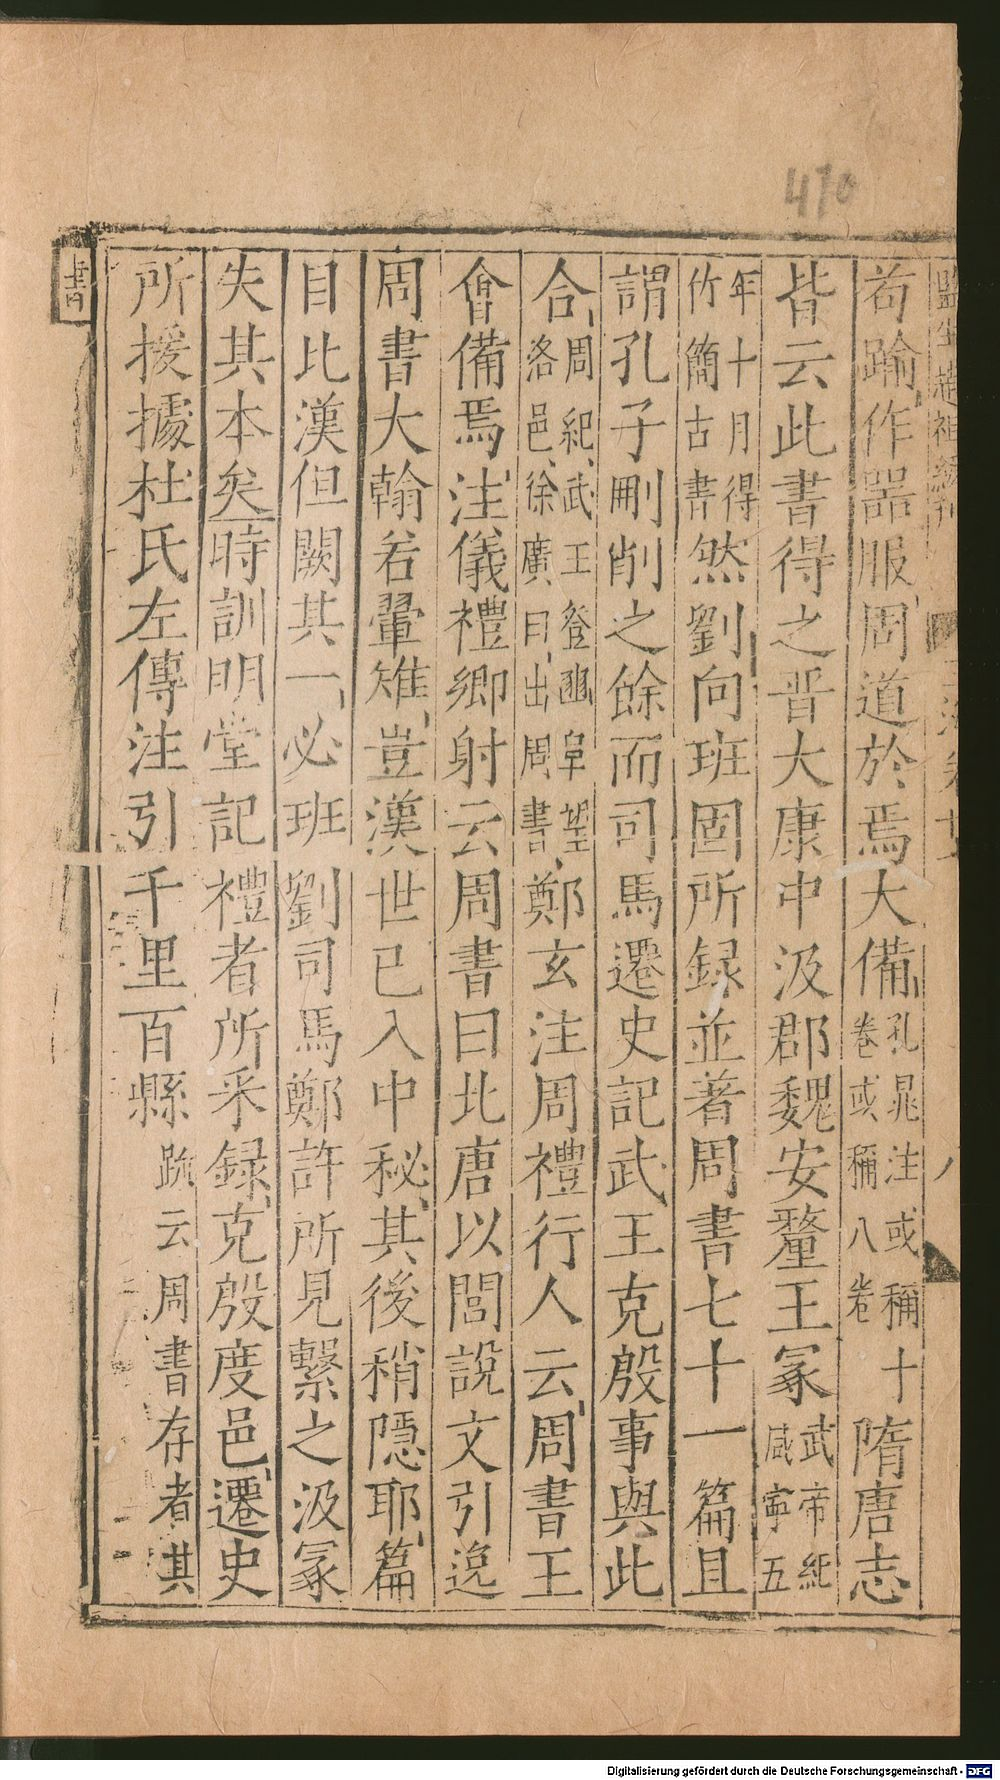 470
苟踰作器服周道於焉大備孔晁注或稱十卷或稱八卷隋唐志
皆云此書得之晋大康中汲郡魏安釐王冢武帝紀咸寧五
年十月得竹簡古書然劉向班固所録並著周書七十一篇且
謂孔子刪削之餘而司馬遷史記武王克殷事與此
合周紀武王登豳阜望洛邑徐廣曰出周書鄭玄注周禮行人云周書王
會備焉注儀禮鄉射云周書曰北唐以閭說文引逸
周書大翰若翬雉豈漢世已入中秘其後稍隱耶篇
目比漢但闕其一必班劉司馬鄭許所見繫之汲冢
失其本矣時訓明堂記禮者所采録克殷度邑遷史
所援據杜氏左傳注引千里百縣疏云周書存者其
書
Digitalisierung gefördert durch die Deutsche Forschungsgemeinschaft - DFG